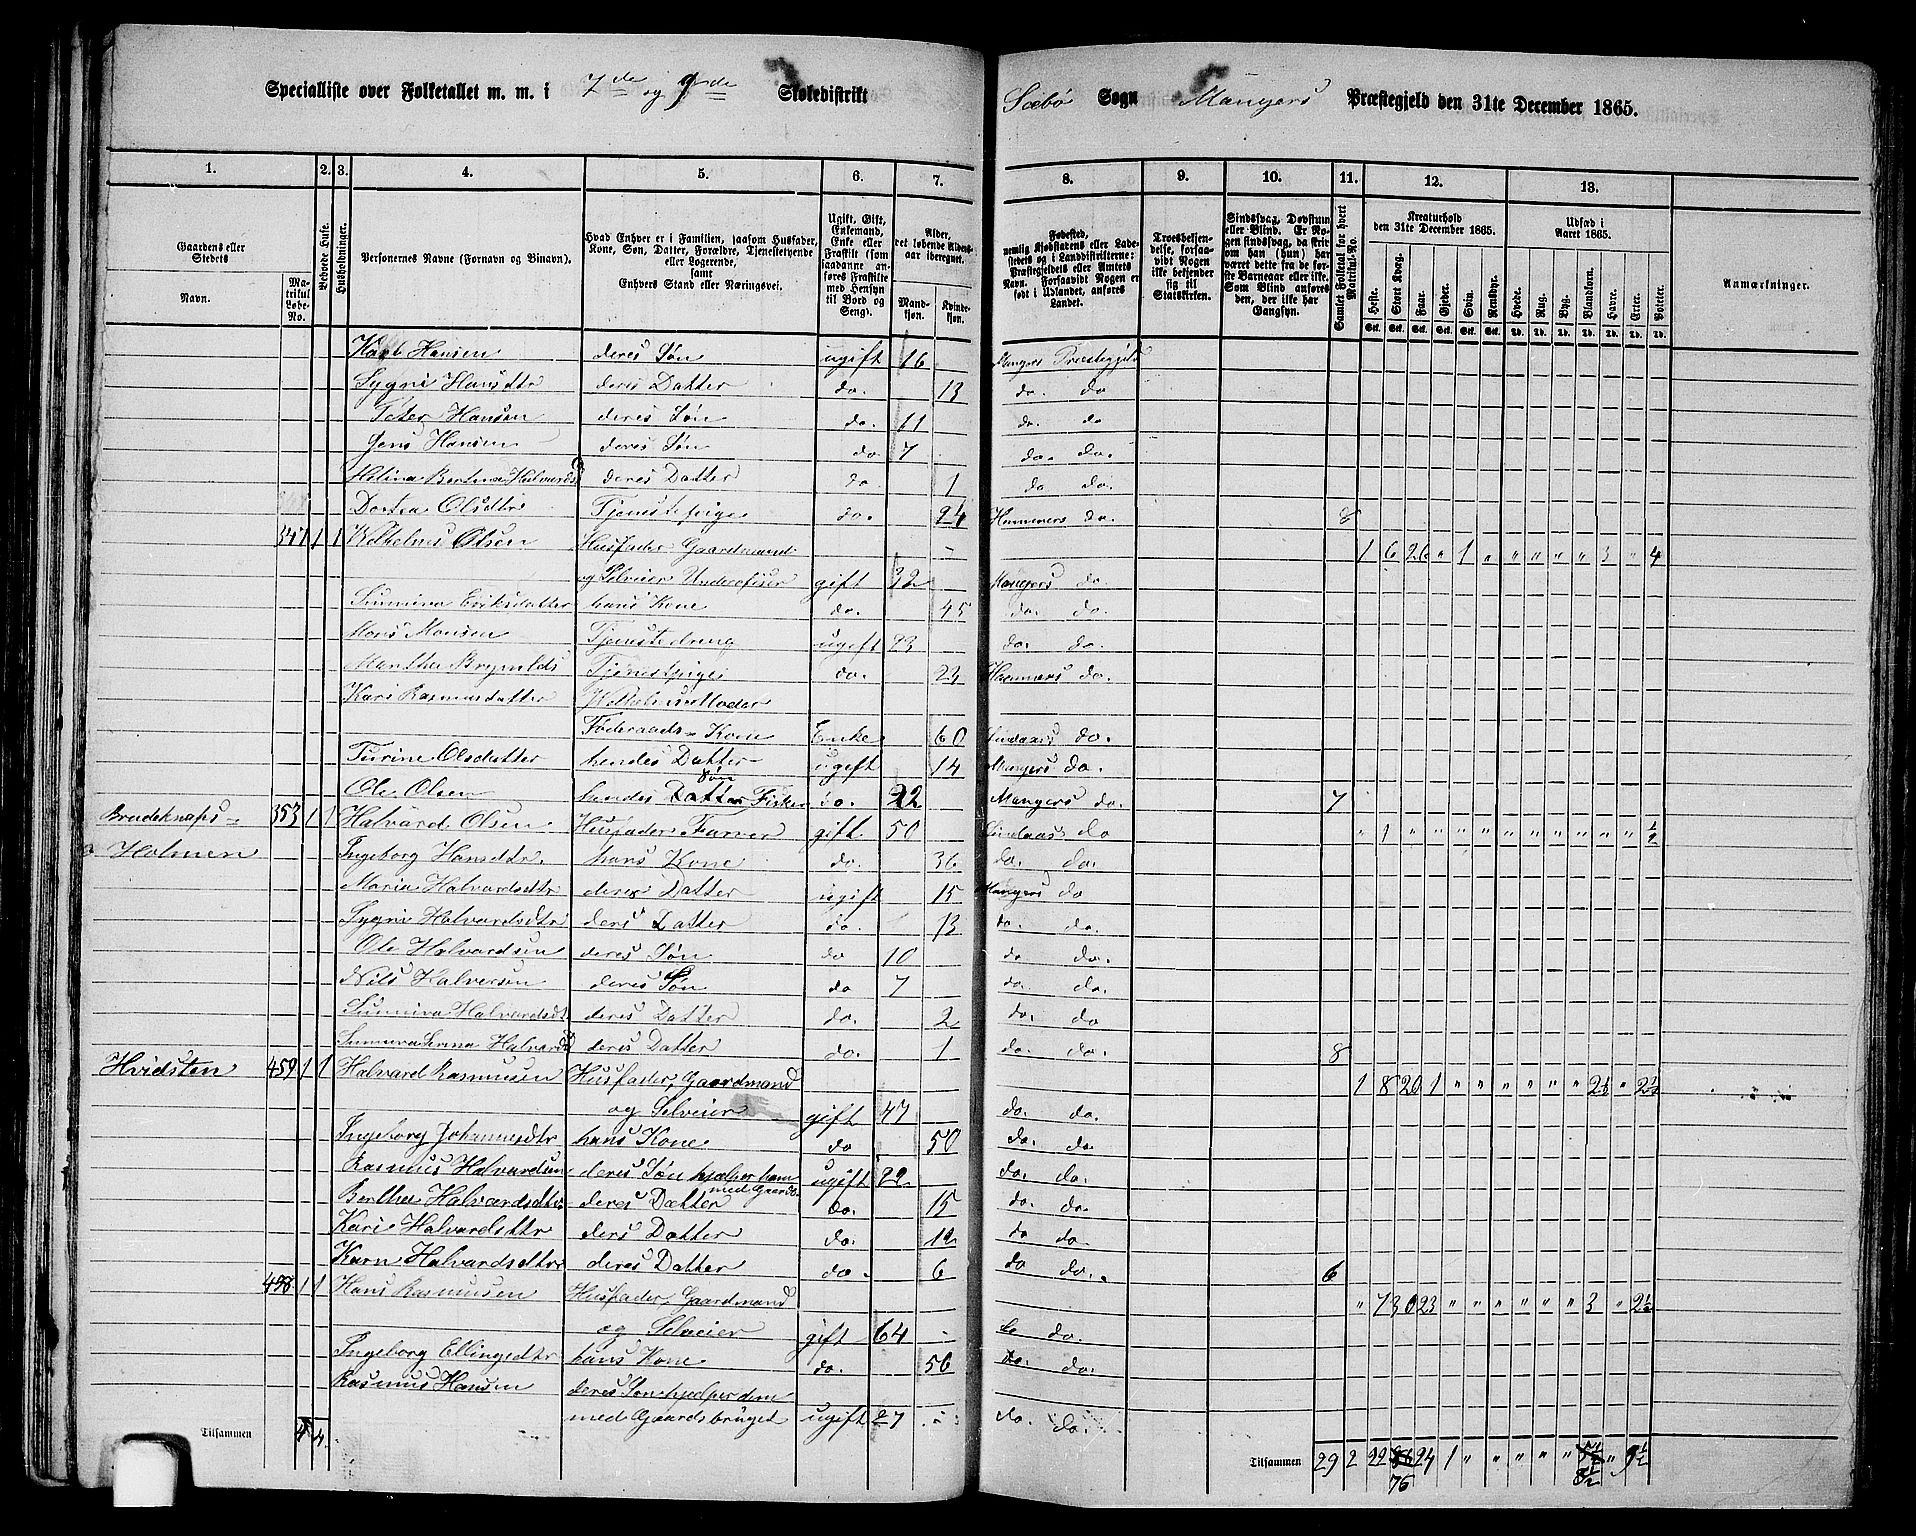 Specialliste over Folketallet m. m. i 7de og 9de Skoledistrikt Sæbø Sogn Mangers Præstegjeld den 31te December 1865.
1. 2. 3. 4. 5. 6. 7. 8. 9. 10. 11. 12. 13.
Gaardens eller Stedets Navn. Matrikul Løbe-No. Beboede Huse. Husholdninger. Personernes Navne (Fornavn og Binavn). Hvad Enhver er i Familien, saasom Husfader, Kone, Søn, Datter, Forældre, Tjenestetyende eller Logerende, samt Enhvers Stand eller Næringsvei. Ugift, Gift, Enkemand, Enke eller Fraskilt (som saadanne anføres Fraskilte med Hensyn til Bord og Seng). Alder, det løbende Aldersaar iberegnet. Mandkjøn. Kvindekjøn.
Fødested, nemlig Kjøbstadens eller Ladestedets og i Landdistrikterne: Præstegjeldets eller Amtets Navn. Forsaavidt Nogen er født i Udlandet, anføres Landet. Troesbekjendelse, forsaavidt Nogen ikke bekjender sig til Statskirken. Sindssvag, Døvstum eller Blind. Er Nogen sindssvag, da skriv om han (hun) har været dette fra de første Barneaar eller ikke. Som Blind anføres den, der ikke har Gangsyn. Samlet Folketal for hvert Matrikul-No. Kreaturhold den 31te December 1865. Heste. Stort Kvæg. Faar. Gjeder. Svin. Rensdyr. Udsæd i Aaret 1865. Hvede. Rug. Byg. Blandkorn. Havre. Erter. Poteter. Anmærkninger.
Hansen deres Søn ugift 16 Mangers Præstegjeld
Sygni Hansdtr deres Datter do. 13 do. do
Peter Hansen deres Søn do. 11 do. do
Jens Hansen deres Søn do 7 do. do.
Halvards deres Datter do 1 do do.
Dortea Olsdtr Tjenestepige do. 24 Hammers do. 8
347 1 1 Olsen Husfader Gaardmand 1 6 26 " 1 " " " " " 3 " 4
og Selveier gift 32 Mangers do.
Sunniva Eriksdatter hans Kone do. 45 do. do.
Mons Monsen Tjenestedreng ugift 23 do. do.
Martha Brynilds Tjenestpige do. 23 Hammers do.
Kari Rasmusdatter Moder
Føderaads Kone Enke 60 Lindaas do.
Turine Olsdatter hendes Datter ugift 14 Mangers do.
Ole Olsen hendes Datter Søn Fisker do. 22 Mangers do. 7
353 1 1 Halvard Olsen Husfader Farver gift 50 Lindaas do " 1 " " " " " " " " " " 1/2
Holmen Ingeborg Hansdtr. hans Kone do. 36 do. do.
Maria Halvardsdtr deres Datter ugift 15 Mangers do
Sygni Halvardsdtr deres Datter do. 13 do. do.
Ole Halvardsen deres Søn do 10 do do.
Nils Halversen deres Søn do 7 do. do.
Sunniva Halvardsdt. deres Datter do. 2 do. do
Halvards deres Datter do. 1 do. do. 8
Hvidsten 459 1 1 Halvard Rasmusen Husfader, Gaardmand 1 8 20 1 " " " " " " 2½ " 2½
og Selveier gift 47 do. do.
Ingeborg Johannesdtr hans Kone do 50 do. do
Rasmus Halvardsen deres Søn hjelper ham med Gaardb. ugift 22 do. do.
Berthe Halvardsdtr. deres Datter do. 15 do. do.
Kari Halvardsdtr ders Datter do. 12 do do.
Karn Halvardsdtr deres Datter do. 6 do do. 6
1 1 Hans Rasmusen Husfader, Gaardmand " 7 30 23 " " " " " " 3 " 2½
og Selveier gift 64 do do.
Ingeborg Ellingsdtr hans Kone do. 56 do. do.
Rasmus Hansen deres Søn hjelper dem
med Gaardsbruget ugift 27 do. do.
Tilsammen 4 4. Tilsammen 29 2 22 76 24 1 " " " " " 8½ " 9½